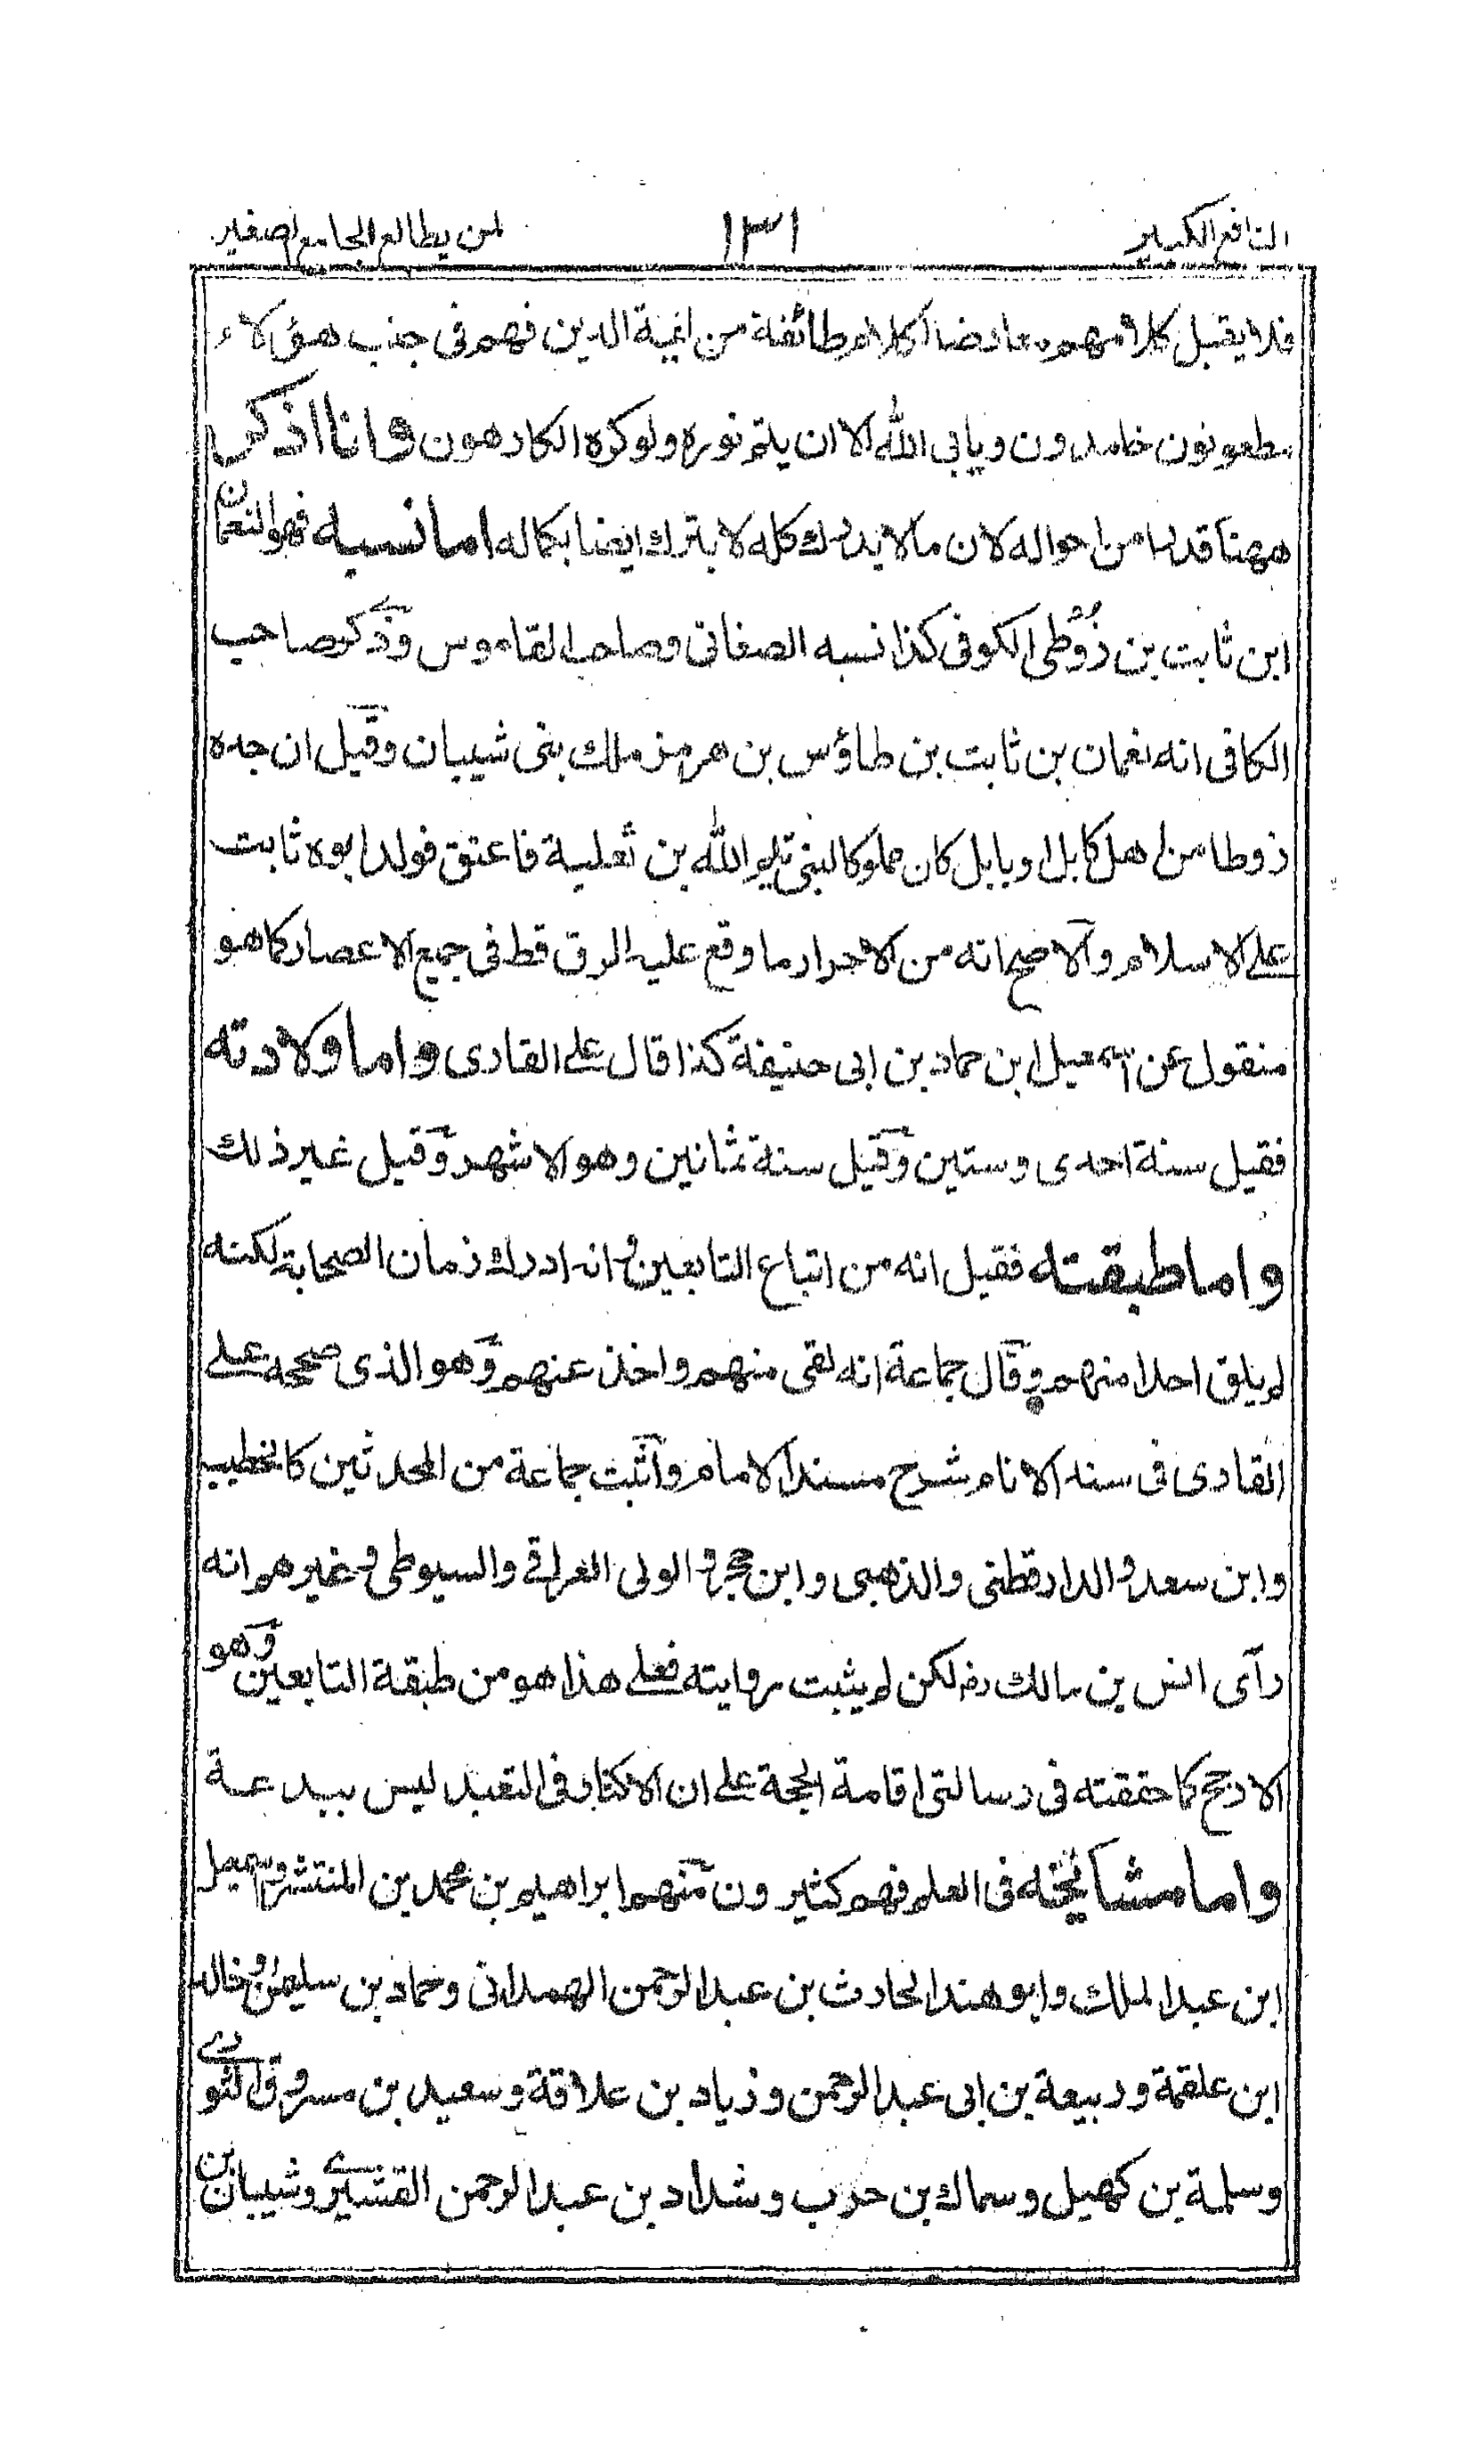 النافع الكبير ١٣١ لمن يطالع الجامع الصغير
فلا يقبل كلامهم معارضا لكلام طائفة من ائمة الدين فهم فى جنب هؤلاء
مطعونون خامدون ويابى الله الا ان يتم نوره ولو كره الكارهون وانا اذكر
ههنا قدرا من احواله لان ما لا يدرك كله لا يترك ايضا بكماله اما نسبه فهو النعمان
ابن ثابت بن زُوْطى الكوفى كذا نسبه الصغانى وصاحب القاموس وذكر صاحب
الكافى انه نعمان بن ثابت بن طاؤس بن هرمز ملك بنى شيبان وقيل ان جده
زوطا من اهل كابل او بابل كان مملوكا لبنى تيم الله بن ثعلبة فاعتق فولد ابوه ثابت
على الاسلام والاصح انه من الاحرار ما وقع عليه الرق قط فى جميع الاعصار كما هو
منقول عن اسمعيل ابن حماد بن ابى حنيفة كذا قال على القارى واما ولادته
فقيل سنة احدى وستين وقيل سنة ثمانين وهو الاشهر وقيل غير ذلك
واما طبقته فقيل انه من اتباع التابعين وانه ادرك زمان الصحابة لكنه
لم يلق احدا منهم وقال جماعة انه لقى منهم واخذ عنهم وهو الذى صححه على
القارى فى سند الانام شرح مسند الامام واثبت جماعة من المحدثين كالخطيب
وابن سعد والدارقطنى والذهبى وابن حجر والولى العراقى والسيوطى وغيرهم انه
رآى انس بن مالك رض لكن لم يثبت روايته فعلى هذا هو من طبقة التابعين وهو
الارجح كما حققته فى رسالتى اقامة الحجة على ان الاكثار فى التعبد ليس ببدعة
واما مشائخه فى العلم فهم كثيرون منهم ابراهيم بن محمد بن المنتشر واسمعيل
ابن عبد الملك وابو هند الحارث بن عبد الرحمن الهمدانى وحماد بن سليمن وخالد
ابن علقمة وربيعة بن ابى عبد الرحمن وزياد بن علاقة وسعيد بن مسروق الثورى
وسلمة بن كهيل وسماك بن حرب وشداد بن عبد الرحمن القشيرى وشيبان بن